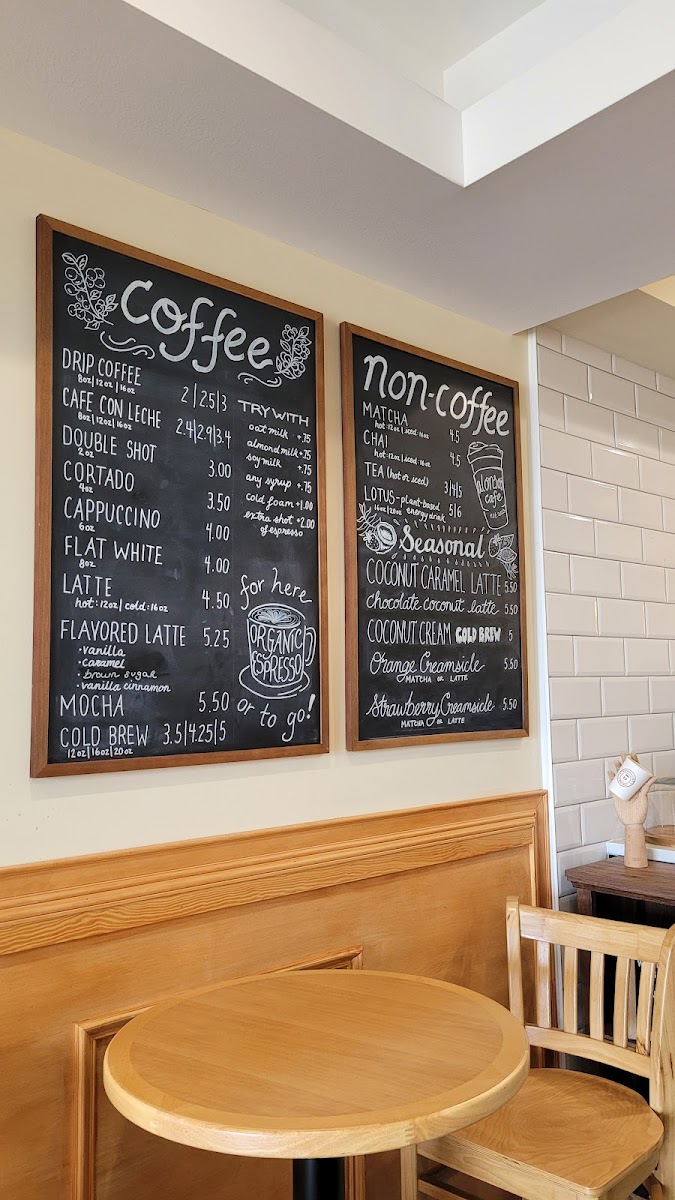 coffee
DRIP COFFEE 2|2.5|3
8oz|12oz|16oz
CAFE CON LECHE 2.4|2.9|3.4
8oz|12oz|16oz
DOUBLE SHOT 3.00
2oz
CORTADO 3.50
4oz
CAPPUCCINO 4.00
6oz
FLAT WHITE 4.00
8oz
LATTE 4.50
hot:12oz|cold:16oz
FLAVORED LATTE 5.25
•vanilla
•caramel
•brown sugar
•vanilla cinnamon
MOCHA 5.50
COLD BREW 3.5|4.25|5
12oz|16oz|20oz
TRY WITH
oat milk +.75
almond milk +.75
soy milk +.75
any syrup +.75
cold foam +1.00
extra shot +2.00
of espresso
for here
ORGANIC
ESPRESSO
or to go!
non-coffee
MATCHA 4.5
hot:12oz|iced:16oz
CHAI 4.5
hot:12oz|iced:16oz
TEA (hot or iced) 3|4|5
LOTUS-plant-based 5|6
16oz|20oz energy drink
cafe
Seasonal
COCONUT CARAMEL LATTE 5.50
chocolate coconut latte 5.50
COCONUT CREAM COLD BREW 5
Orange Creamsicle 5.50
MATCHA or LATTE
Strawberry Creamsicle 5.50
MATCHA or LATTE